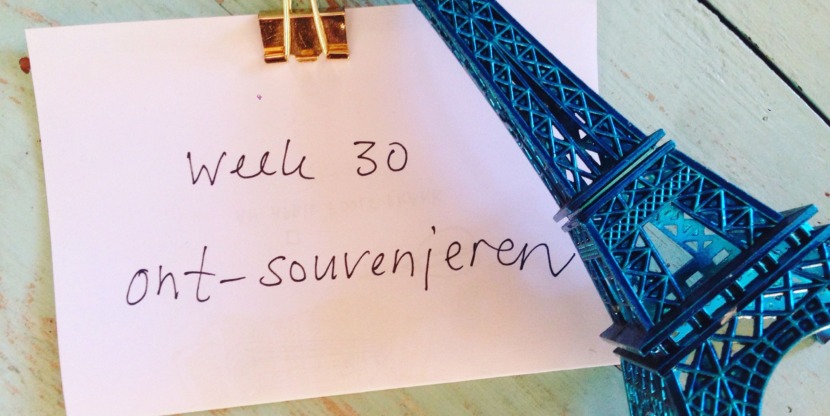 Week 30
ont-souvenieren